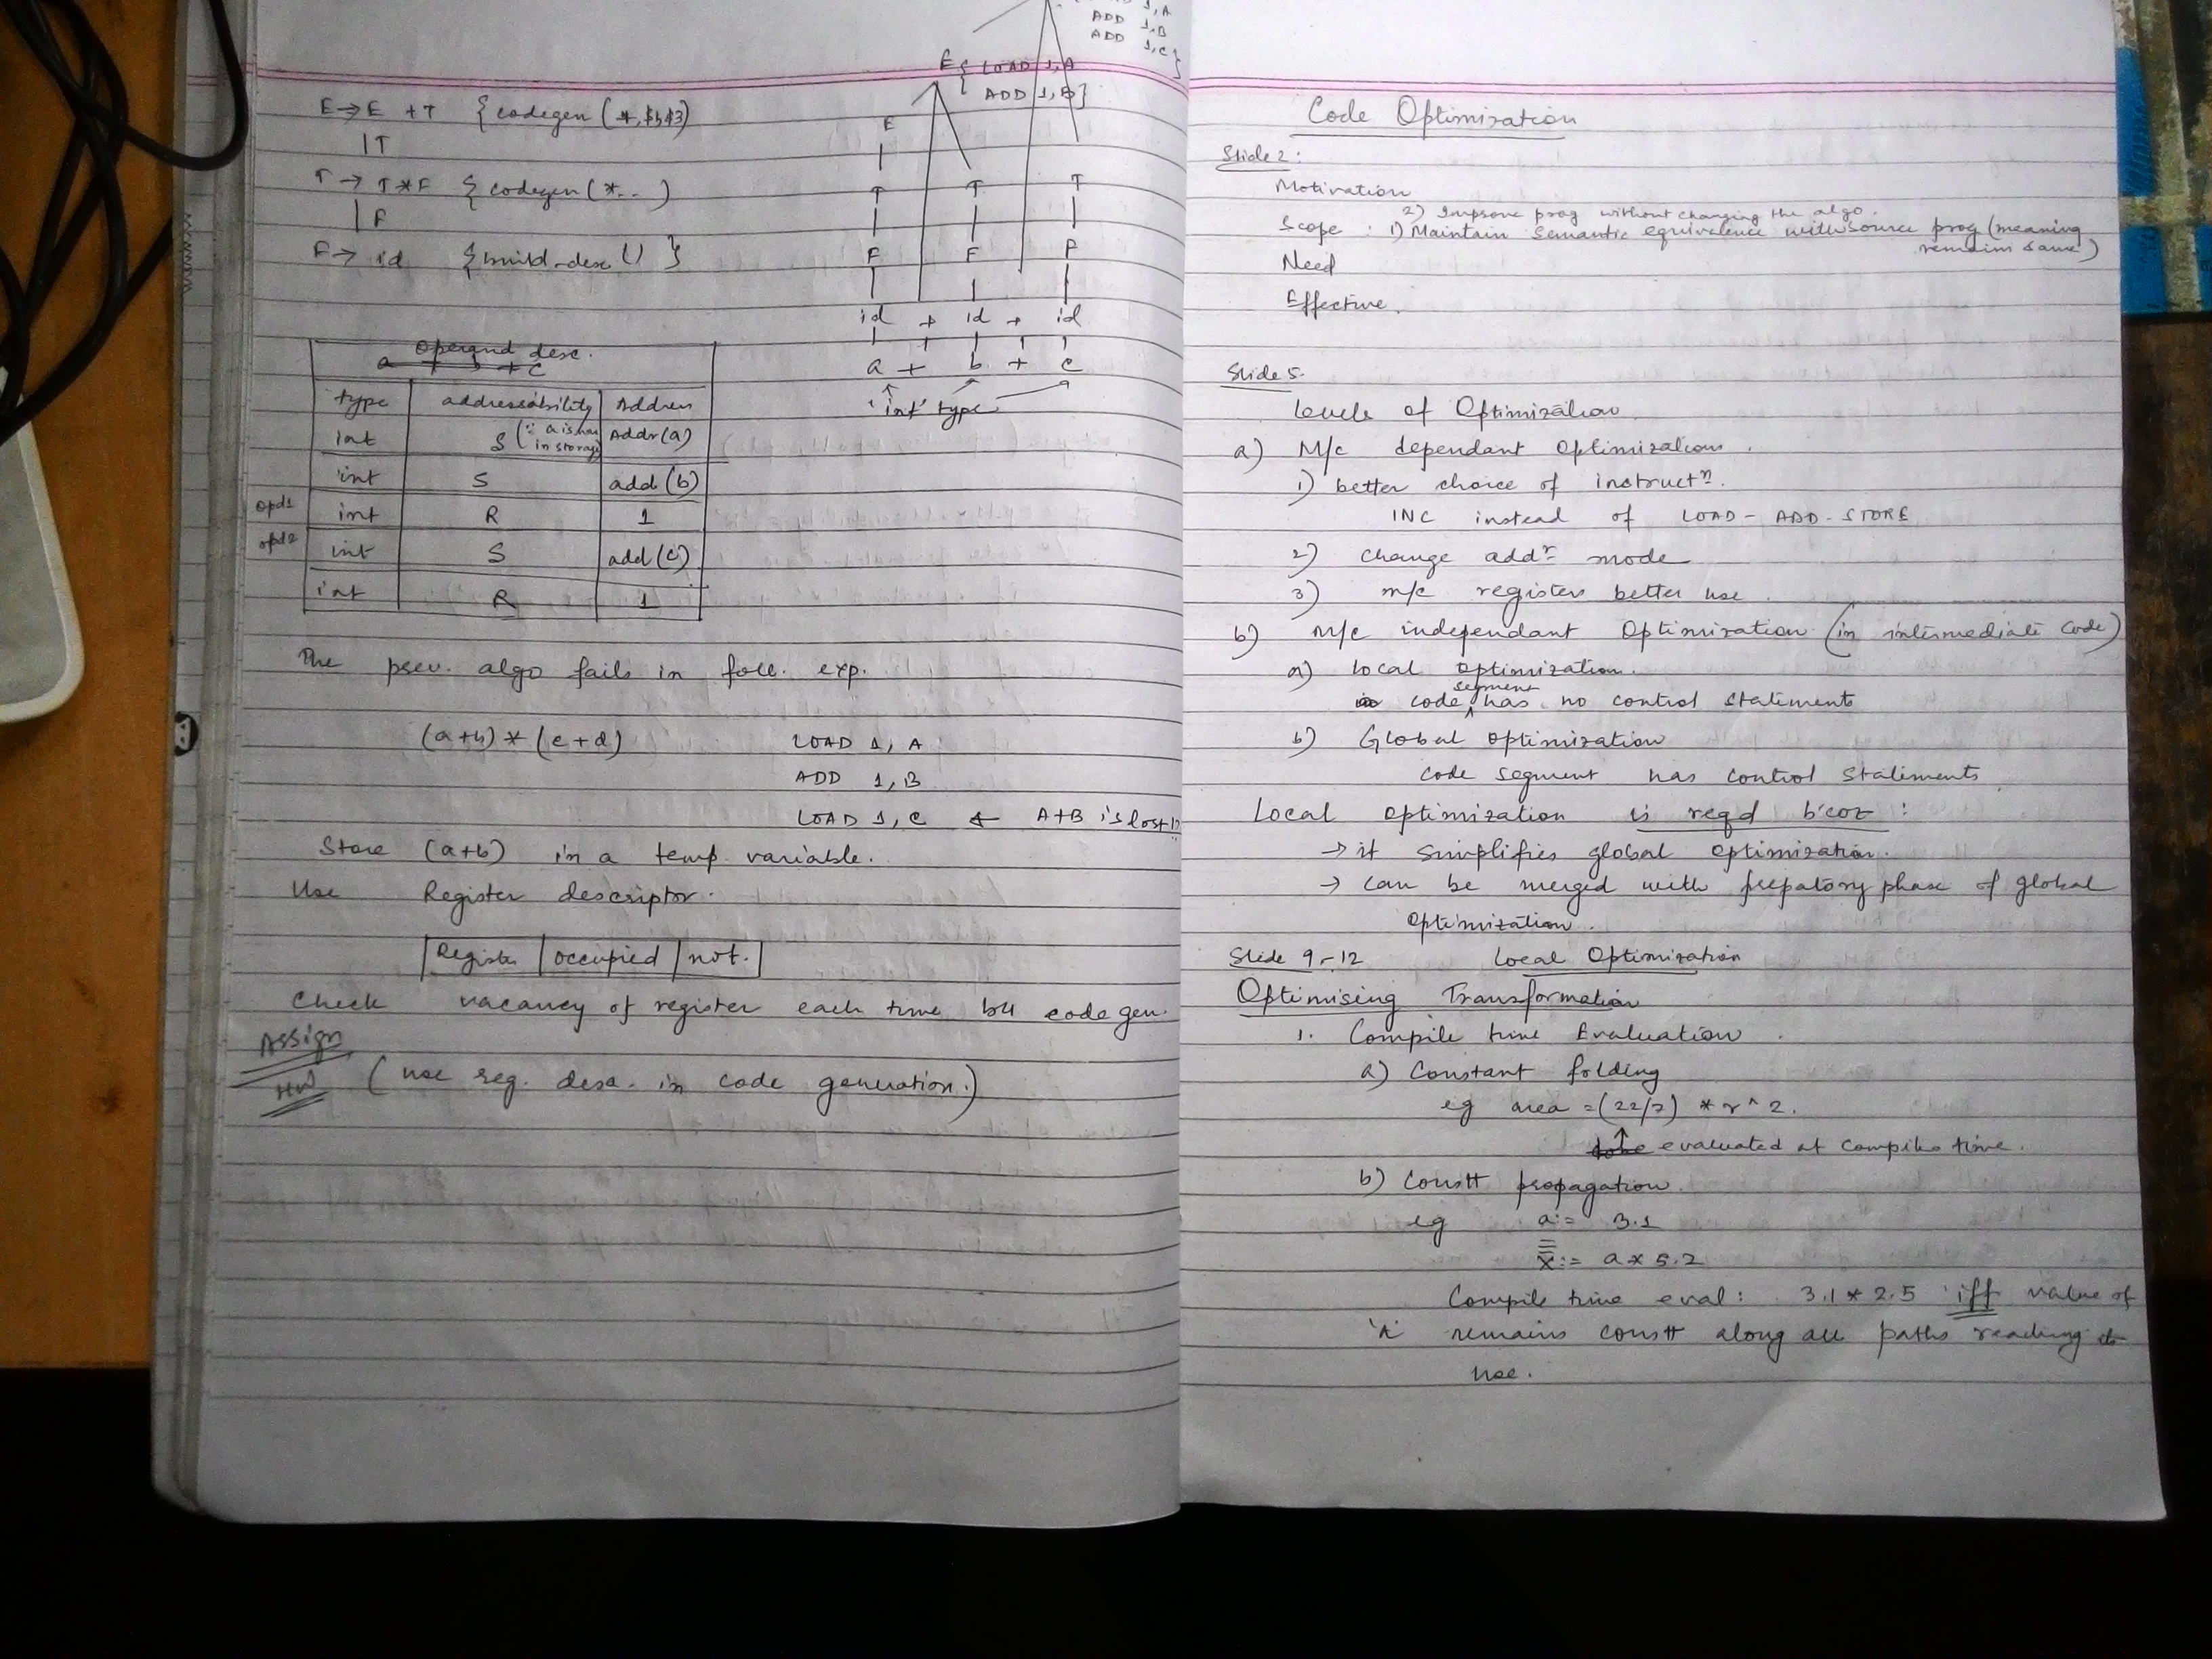 1, A
ADD 1,B
ADD 1,C}
E { LOAD 1, A
ADD 1, B}
E → E + T { codegen (+, $1, $3)
| T
T → T * F { codegen (*...)
| F
F → id { build_desc () }
E
T T T
F F F
id + id + id
a + b + c
'int' type
Operand desc.
a + b + c
type addressability Address
int S (∵ a is now in storage) Addr(a)
int S add (b)
opd1 int R 1
opd2 int S add (c)
int R 1
The prev. algo fails in foll. exp.
(a+b) * (c+d) LOAD 1, A
ADD 1, B
LOAD 1, C ← A+B is lost!!
Store (a+b) in a temp. variable.
Use Register descriptor.
Register | occupied | not.
Check vacancy of register each time b4 code gen.
Assign
HW (use reg. desc. in code generation.)
Code Optimization
Slide 2:
Motivation
2) Improve prog without changing the algo.
Scope : 1) Maintain semantic equivalence with source prog (meaning
remain same)
Need
Effective.
Slide 5.
Levels of Optimization
a) M/c dependant Optimizations.
1) better choice of instructn.
INC instead of LOAD - ADD - STORE
2) change addr mode
3) m/c registers better use.
b) M/c independant Optimization (in intermediate code)
a) Local Optimization.
code segment has no control statements
b) Global Optimization
code segment has control statements
Local optimization is reqd b'coz :
→ it simplifies global optimization.
→ can be merged with prepatory phase of global
optimization.
Slide 9-12 Local Optimization
Optimising Transformation
1. Compile time Evaluation.
a) Constant folding
eg area = (22/7) * r ^ 2.
evaluated at compile time.
b) Constt propagation
eg a := 3.1
x := a * 5.2
Compile time eval : 3.1 * 2.5 iff value of
'a' remains constt along all paths reaching its
use.